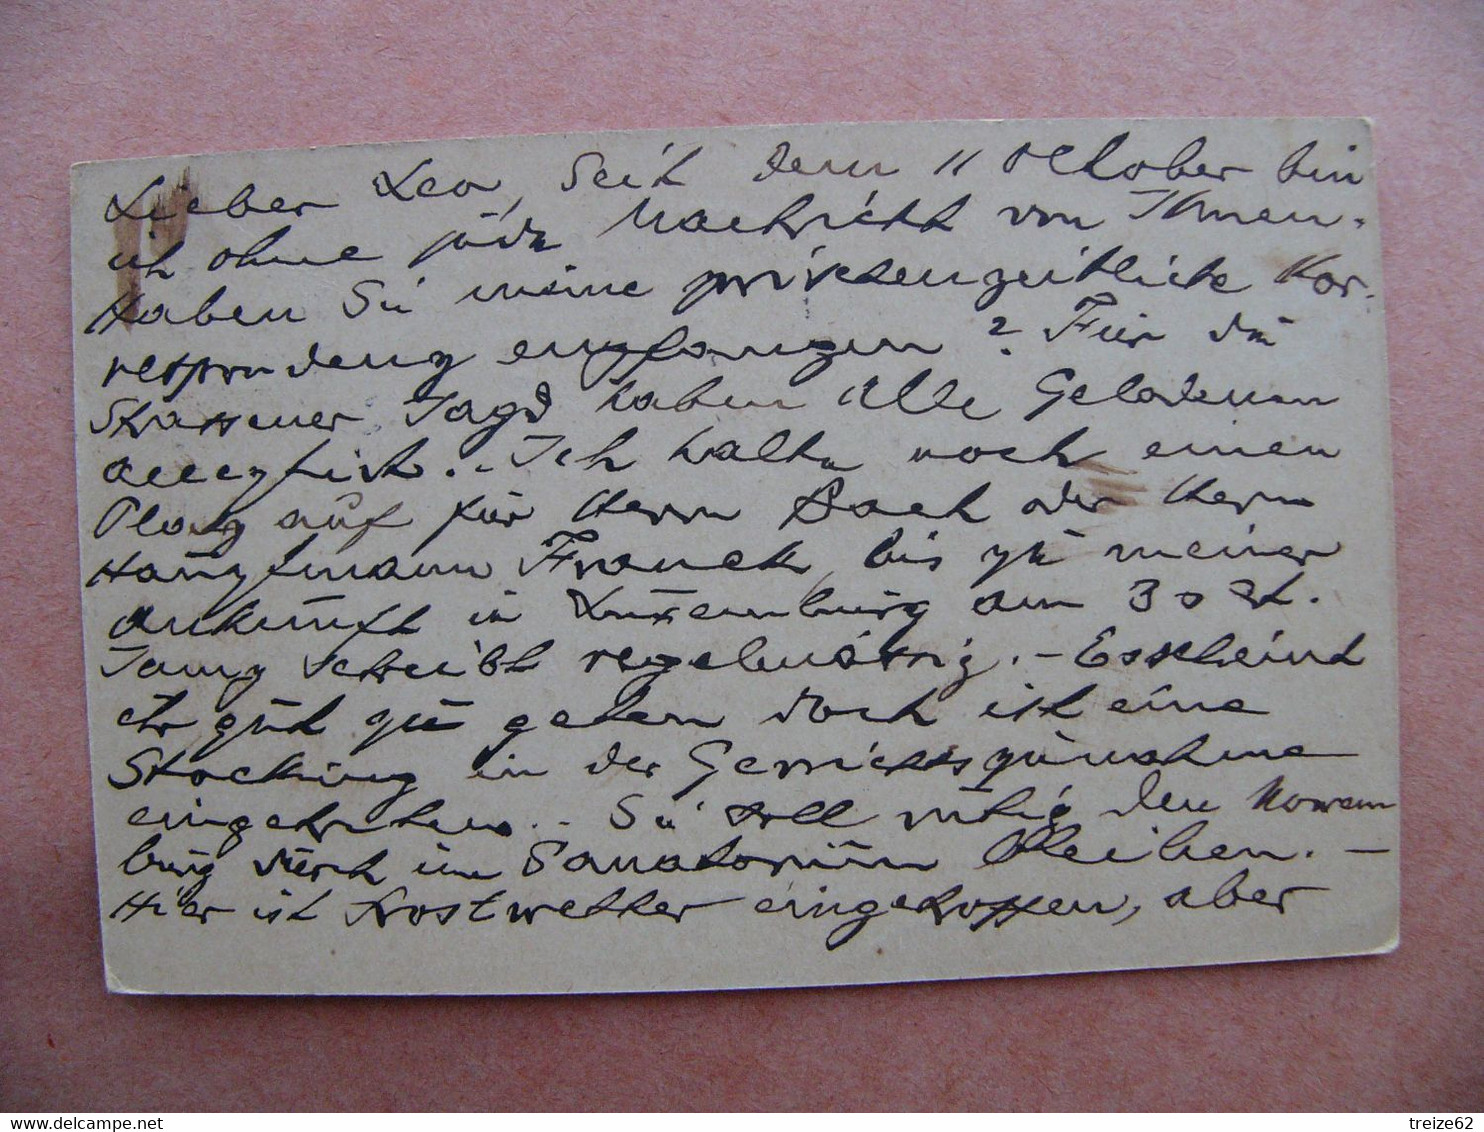 Lieber Leo, Seit dem 11 Oktober bin
ich ohne jede Nachricht von Ihnen.
Haben Sie meine zwischenzeitliche Kor-
respondenz empfangen? Für die
Strassener Jagd haben alle Geladenen
accepfirt. - Ich halte noch einen
Platz auf für Herrn Bach oder Herrn
Hauptmann Franck bis zu meiner
Ankunft in Luxemburg am 30 st.
Fanny schreibt regelmässig. - Es scheint
ihr gut zu gehen doch ist eine
Stockung in der Gewichtszunahme
eingetreten. - Sie soll ruhig den Novem
ber durch im Sanatorium bleiben. -
Hier ist Frostwetter eingetroffen, aber
treize62